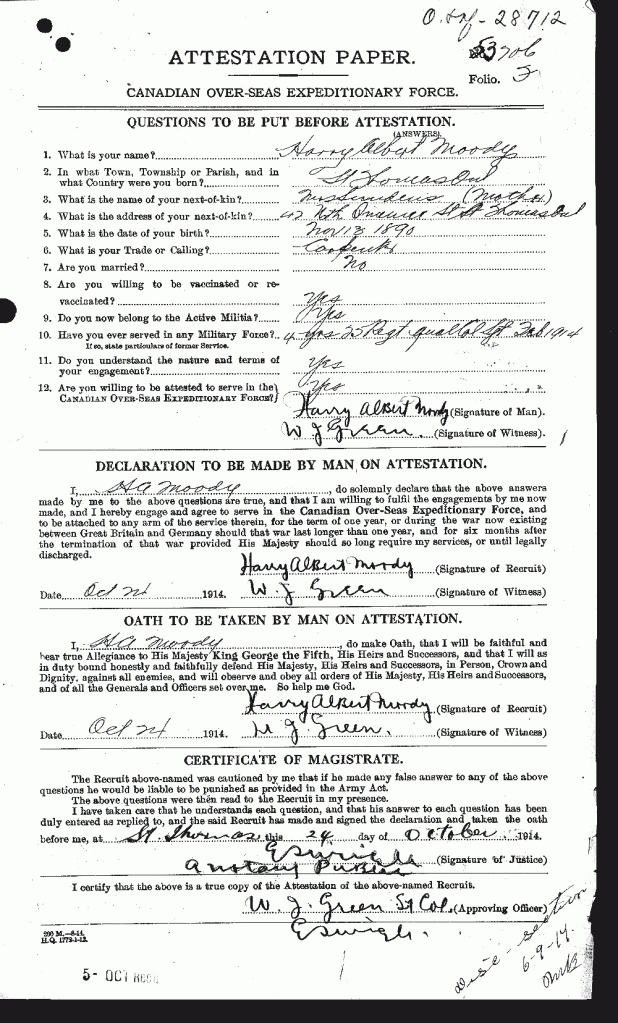 28712
ATTESTATION PAPER.
Folio.
CANADIAN OVER-SEAS EXPEDITIONARY FORCE.
QUESTIONS TO BE PUT BEFORE ATTESTATION.
(ANSWERS)
1. What is your name? Harry Albert Moody
2. In what Town, Township or Parish, and in
what Country were you born? St Thomas Ont
3. What is the name of your next-of-kin? (Mother)
4. What is the address of your next-of-kin? 42 St St Thomas Ont
5. What is the date of your birth? Nov 13 1890
6. What is your Trade or Calling? Carpenter
7. Are you married? No
8. Are you willing to be vaccinated or re-
vaccinated? Yes
9. Do you now belong to the Active Militia? Yes
10. Have you ever served in any Military Force? 4 yrs 25 Regt Sgt Feb 1914
If so, state particulars of former Service.
11. Do you understand the nature and terms of
your engagement? Yes
12. Are you willing to be attested to serve in the
CANADIAN OVER-SEAS EXPEDITIONARY FORCE? Yes
Harry Albert Moody (Signature of Man).
W J Green. (Signature of Witness).
DECLARATION TO BE MADE BY MAN ON ATTESTATION.
I, HA Moody, do solemnly declare that the above answers
made by me to the above questions are true, and that I am willing to fulfil the engagements by me now
made, and I hereby engage and agree to serve in the Canadian Over-Seas Expeditionary Force, and
to be attached to any arm of the service therein, for the term of one year, or during the war now existing
between Great Britain and Germany should that war last longer than one year, and for six months after
the termination of that war provided His Majesty should so long require my services, or until legally
discharged.
Harry Albert Moody (Signature of Recruit)
Date Oct 24 1914. W. J Green (Signature of Witness)
OATH TO BE TAKEN BY MAN ON ATTESTATION.
I, HA Moody, do make Oath, that I will be faithful and
bear true Allegiance to His Majesty King George the Fifth, His Heirs and Successors, and that I will as
in duty bound honestly and faithfully defend His Majesty, His Heirs and Successors, in Person, Crown and
Dignity, against all enemies, and will observe and obey all orders of His Majesty, His Heirs and Successors,
and of all the Generals and Officers set over me. So help me God.
Harry Albert Moody (Signature of Recruit)
Date Oct 24 1914. W J Green. (Signature of Witness)
CERTIFICATE OF MAGISTRATE.
The Recruit above-named was cautioned by me that if he made any false answer to any of the above
questions he would be liable to be punished as provided in the Army Act.
The above questions were then read to the Recruit in my presence.
I have taken care that he understands each question, and that his answer to each question has been
duly entered as replied to, and the said Recruit has made and signed the declaration and taken the oath
before me, at St. Thomas, this 24 day of October. 1914.
(Signature of Justice)
a notary Public
I certify that the above is a true copy of the Attestation of the above-named Recruit.
W. J. Green (Approving Officer)
200 M.-8-14.
H.Q. 1772-1-13.
5- OCT